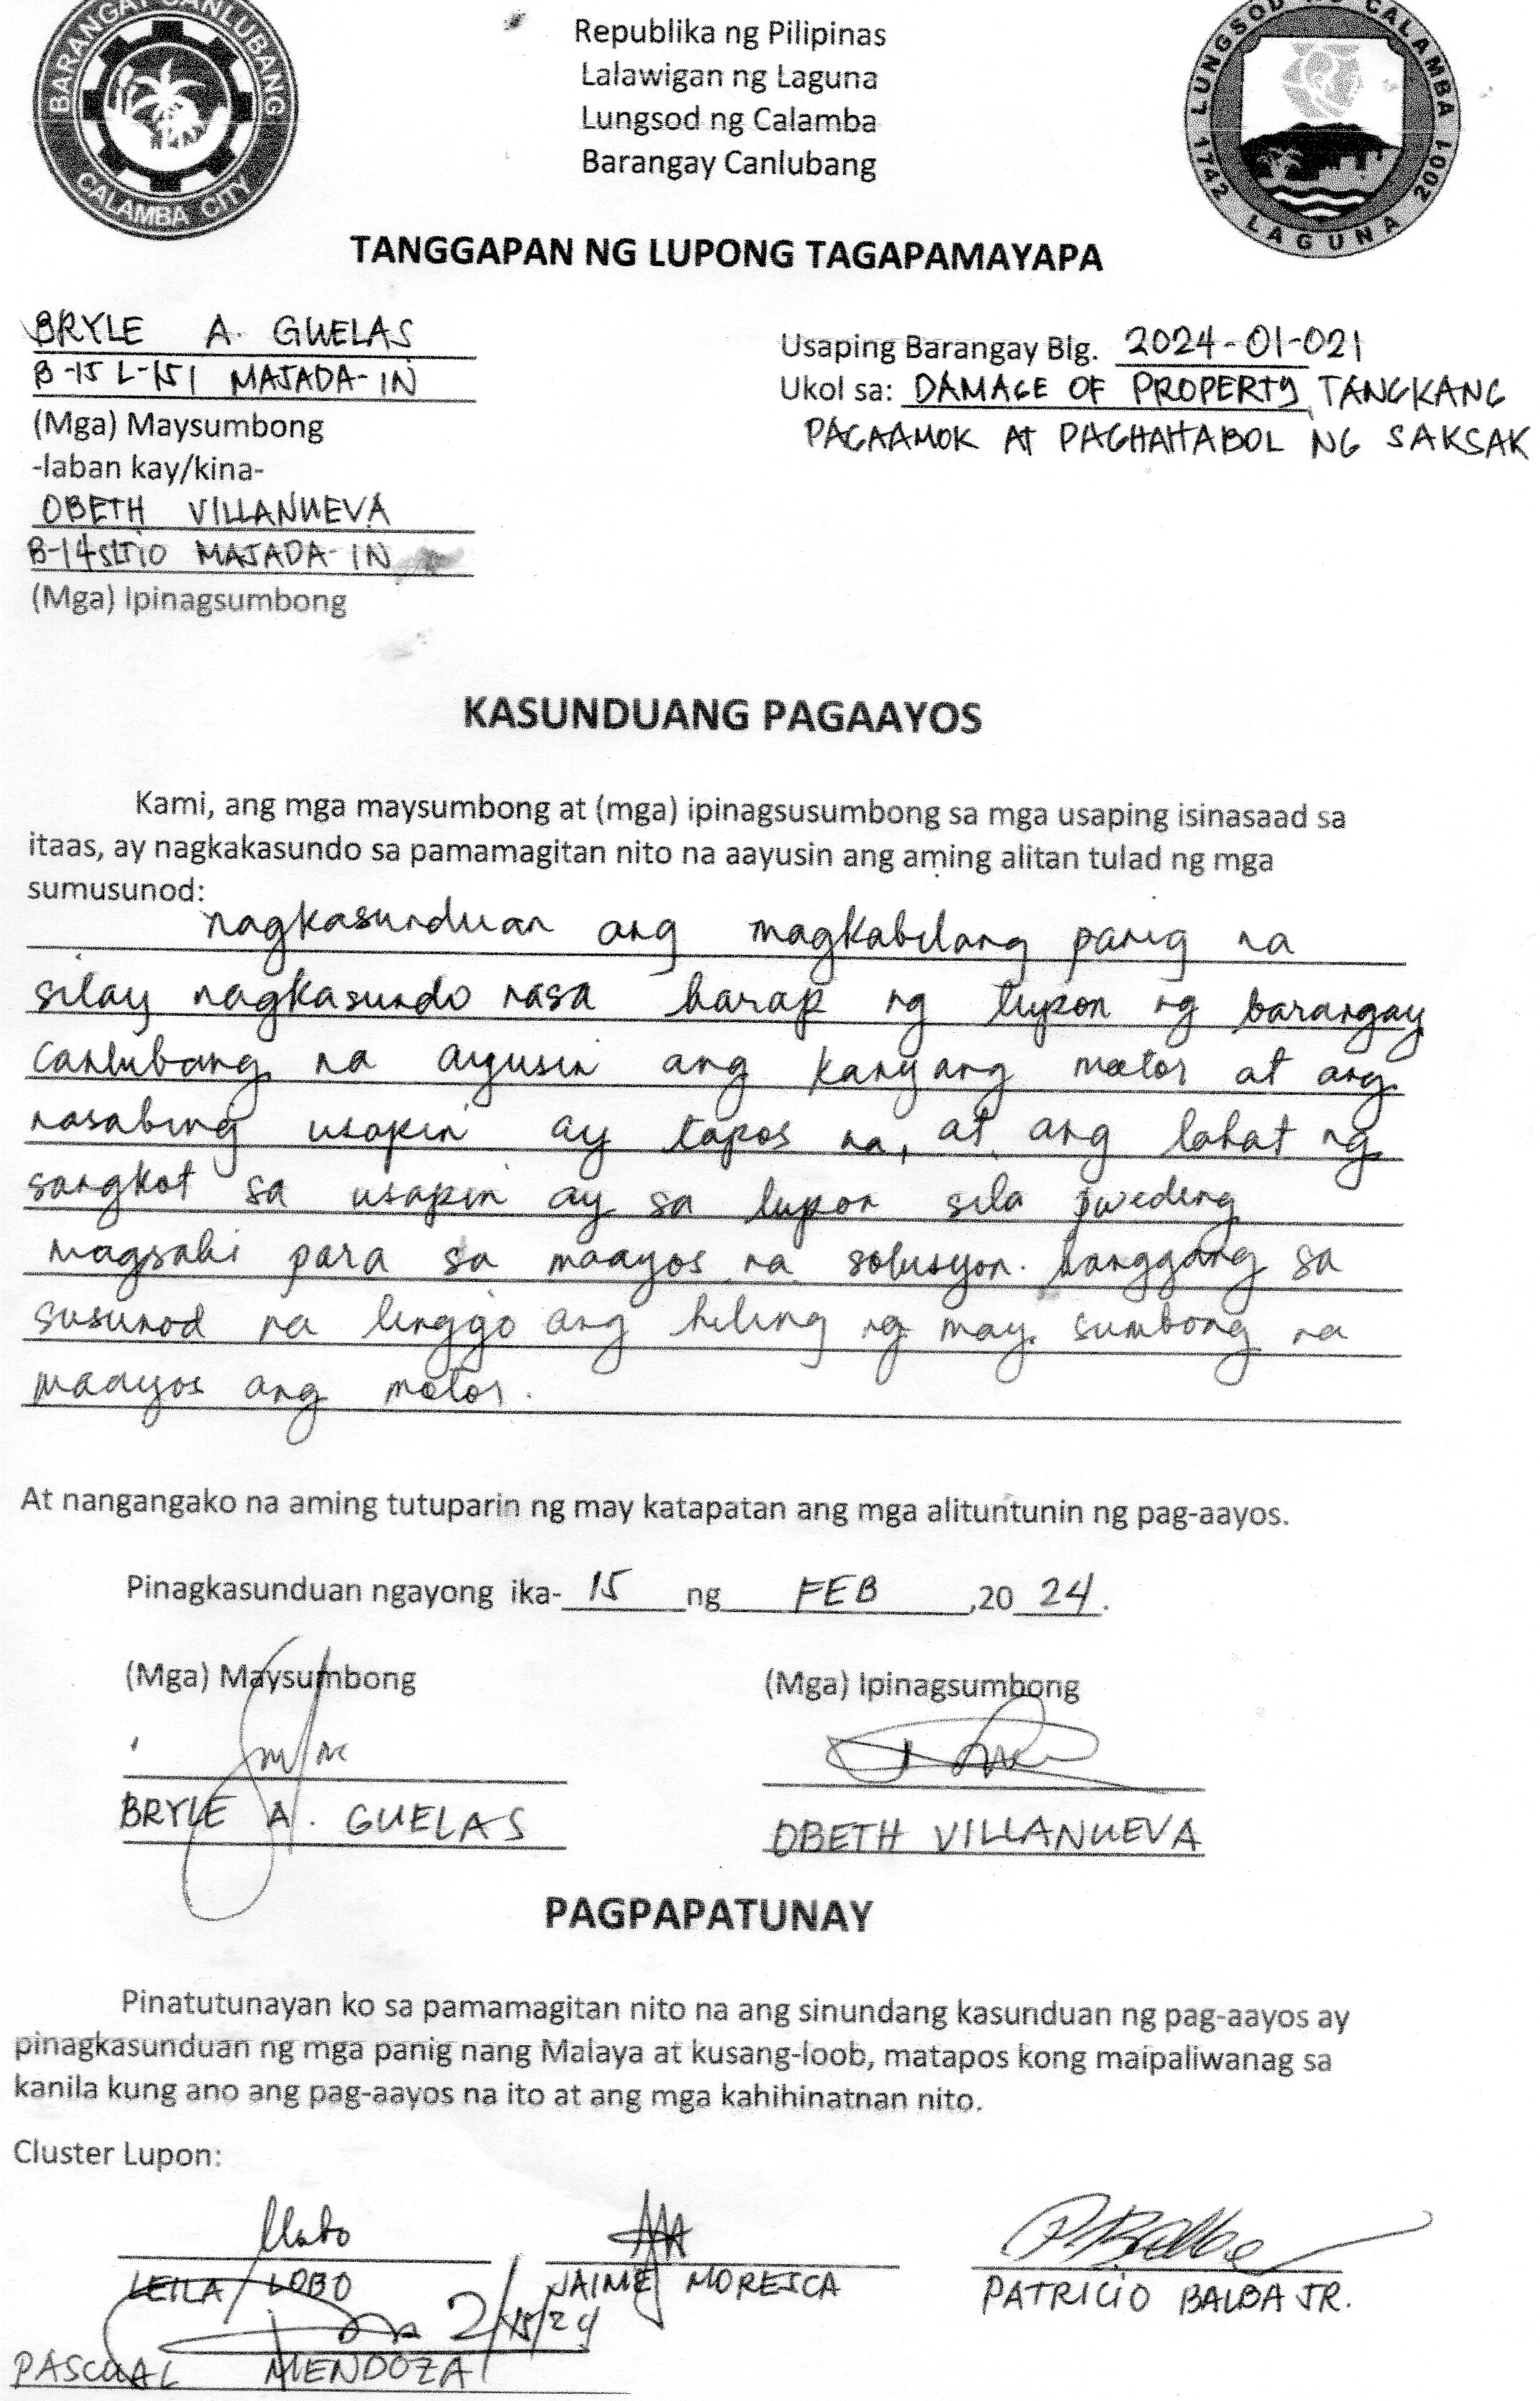 BARANGAY CANLUBANG
CALAMBA CITY
Republika ng Pilipinas
Lalawigan ng Laguna
Lungsod ng Calamba
Barangay Canlubang
LUNGSOD NG CALAMBA
1742 LAGUNA 2001
TANGGAPAN NG LUPONG TAGAPAMAYAPA
BRYLE A. GUELAS
B-15 L-151 MAJADA-IN
(Mga) Maysumbong
-laban kay/kina-
OBETH VILLANUEVA
MAJADA-IN
(Mga) Ipinagsumbong
Usaping Barangay Blg. 2024-01-021
Ukol sa: DAMAGE OF PROPERTY, TANGKANG
PAGAAMOK AT PAGHAHABOL NG SAKSAK
KASUNDUANG PAGAAYOS
Kami, ang mga maysumbong at (mga) ipinagsusumbong sa mga usaping isinasaad sa
itaas, ay nagkakasundo sa pamamagitan nito na aayusin ang aming alitan tulad ng mga
sumusunod:
nagkasunduan ang magkabilang panig na
silay nagkasundo nasa harap ng lupon ng barangay
canlubang na ayusin ang kanyang motor at ang
nasabing usapin ay tapos na, at ang lahat ng
sangkot sa usapin ay sa lupon sila pweding
magsabi para sa maayos na solusyon. hanggang sa
susunod na linggo ang hiling ng may sumbong na
maayos ang motor.
At nangangako na aming tutuparin ng may katapatan ang mga alituntunin ng pag-aayos.
Pinagkasunduan ngayong ika- 15 ng FEB ,20 24.
(Mga) Maysumbong
(Mga) Ipinagsumbong
BRYLE A. GUELAS
OBETH VILLANUEVA
PAGPAPATUNAY
Pinatutunayan ko sa pamamagitan nito na ang sinundang kasunduan ng pag-aayos ay
pinagkasunduan ng mga panig nang Malaya at kusang-loob, matapos kong maipaliwanag sa
kanila kung ano ang pag-aayos na ito at ang mga kahihinatnan nito.
Cluster Lupon:
LEILA LOBO
JAIME MORESCA
PATRICIO BALBA JR.
2/15/24
PASCUAL MENDOZA